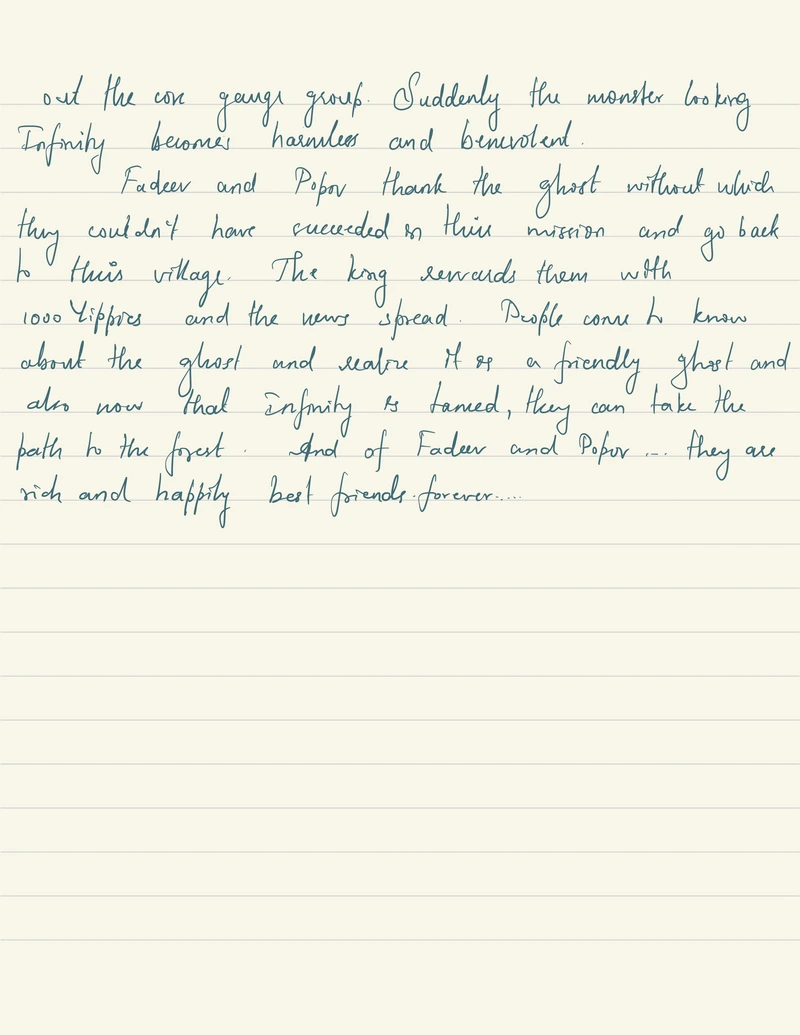 out the core gauge group. Suddenly the monster looking
Infinity becomes harmless and benevolent.
Fadeev and Popov thank the ghost without which
they couldn't have succeeded in their mission and go back
to their village. The king rewards them with
1000 Yippies and the news spread. People come to know
about the ghost and realize it is a friendly ghost and
also now that Infinity is tamed, they can take the
path to the forest. And of Fadeev and Popov ... they are
rich and happily best friends forever....